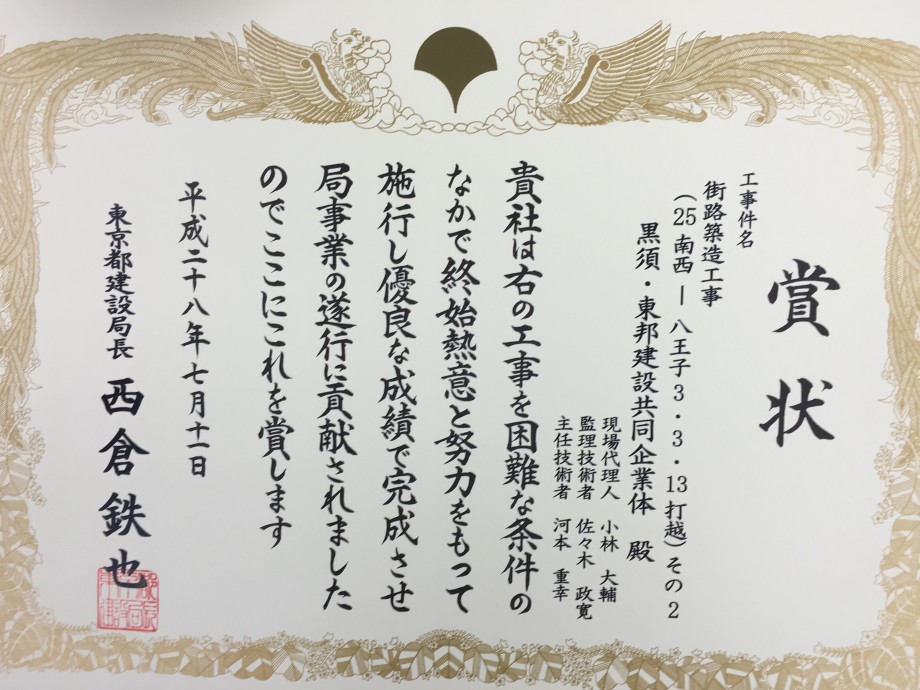 賞状
工事件名
街路築造工事
（25 南西 ー 八王子 3・3・13 打越）その 2
黒須・東邦建設共同企業体 殿
現場代理人 小林 大輔
監理技術者 佐々木 政寛
主任技術者 河本 重幸
貴社は右の工事を困難な条件の
なかで終始熱意と努力をもって
施行し優良な成績で完成させ
局事業の遂行に貢献されました
のでここにこれを賞します
平成二十八年七月十一日
東京都建設局長 西倉鉄也